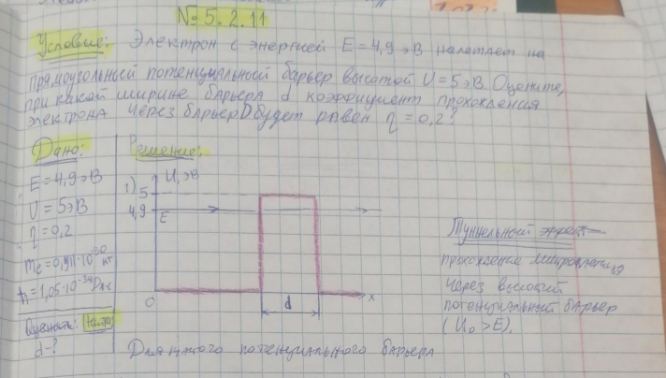 № 5.2.11
Условие: Электрон с энергией E = 4,9 эВ налетает на
прямоугольный потенциальный барьер высотой U = 5 эВ. Оцените,
при какой ширине барьера d коэффициент прохождения
электрона через барьер D будет равен η = 0,2?
Дано:
E = 4,9 эВ
U = 5 эВ
η = 0,2
mе = 0,911·10⁻³⁰ кг
ħ = 1,05·10⁻³⁴ Дж·с
Найти
d - ?
Решение:
1) U, эВ
5
4,9
E
0
d
x
Туннельный эффект –
прохождение микрочастиц
через высокий
потенциальный барьер
(U₀ > E).
Для потенциального барьера